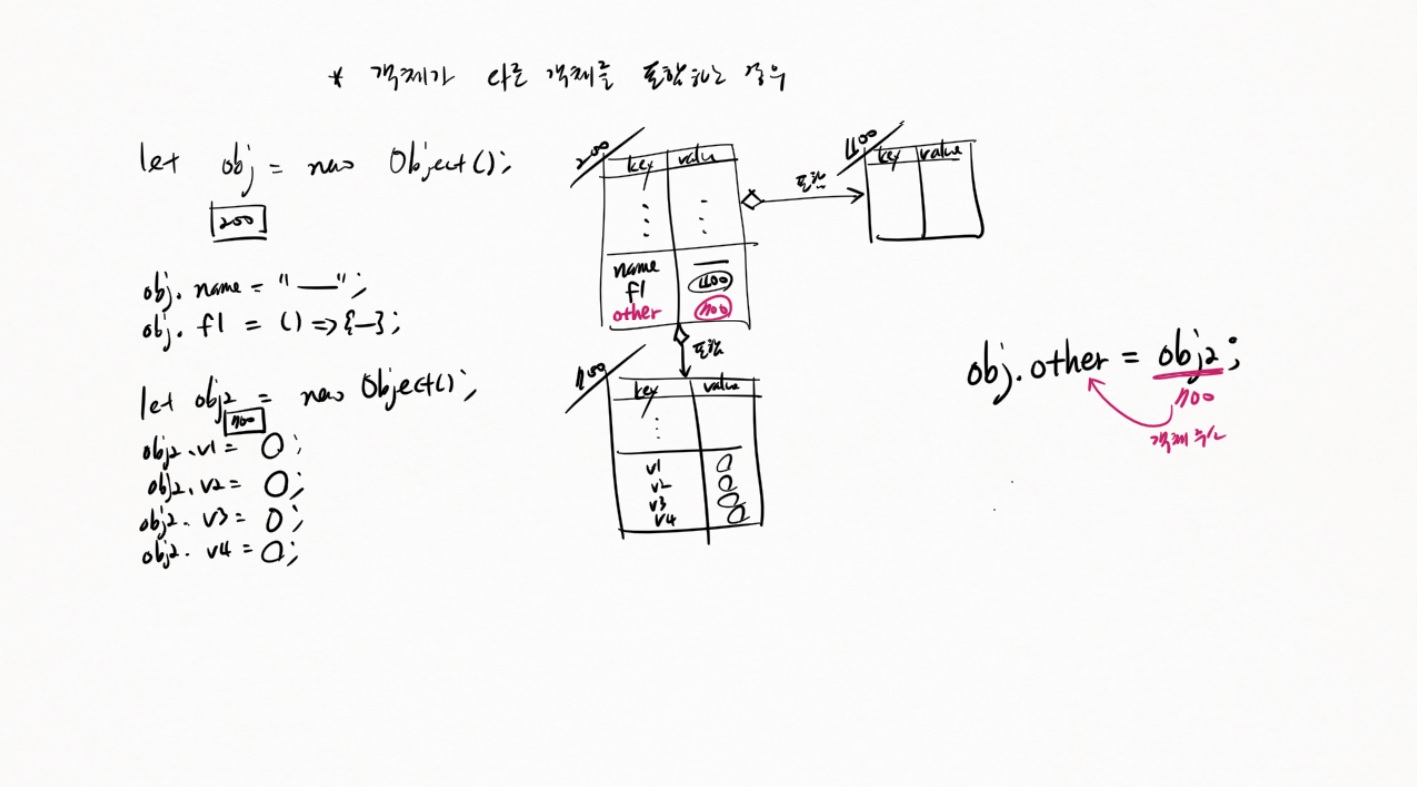 * 객체가 다른 객체를 포함하는 경우
let obj = new Object();
200
obj.name = "—";
obj.f1 = () => {—};
let obj2 = new Object();
1700
obj2.v1 = O;
obj2.v2 = O;
obj2.v3 = O;
obj2.v4 = O;
200
key value
name —
f1
other 1700
포함
key value
포함
1700
key value
v1 O
v2 O
v3 O
v4 O
obj.other = obj2;
1700
객체 주소